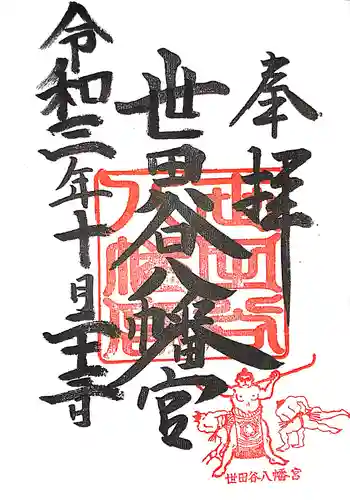 奉拝
世田谷八幡宮
令和三年十月
世田谷
八幡宮
世田谷八幡宮